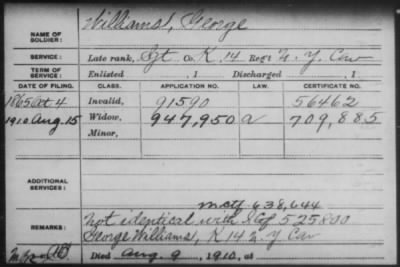 NAME OF SOLDIER: Williams, George
SERVICE: Late rank, Sgt Co. K 14 Reg't N. Y. Cav
TERM OF SERVICE: Enlisted , 1 Discharged , 1
DATE OF FILING. CLASS. APPLICATION NO. LAW. CERTIFICATE NO.
1865 Oct 4 Invalid, 91590 56462
1910 Aug. 15 Widow, 947,950 a 709,885
Minor,
ADDITIONAL SERVICES:
mctf 638,644
REMARKS: Not identical with 525800
George Williams, K 14 N. Y. Cav
Died Aug. 9, 1910, at